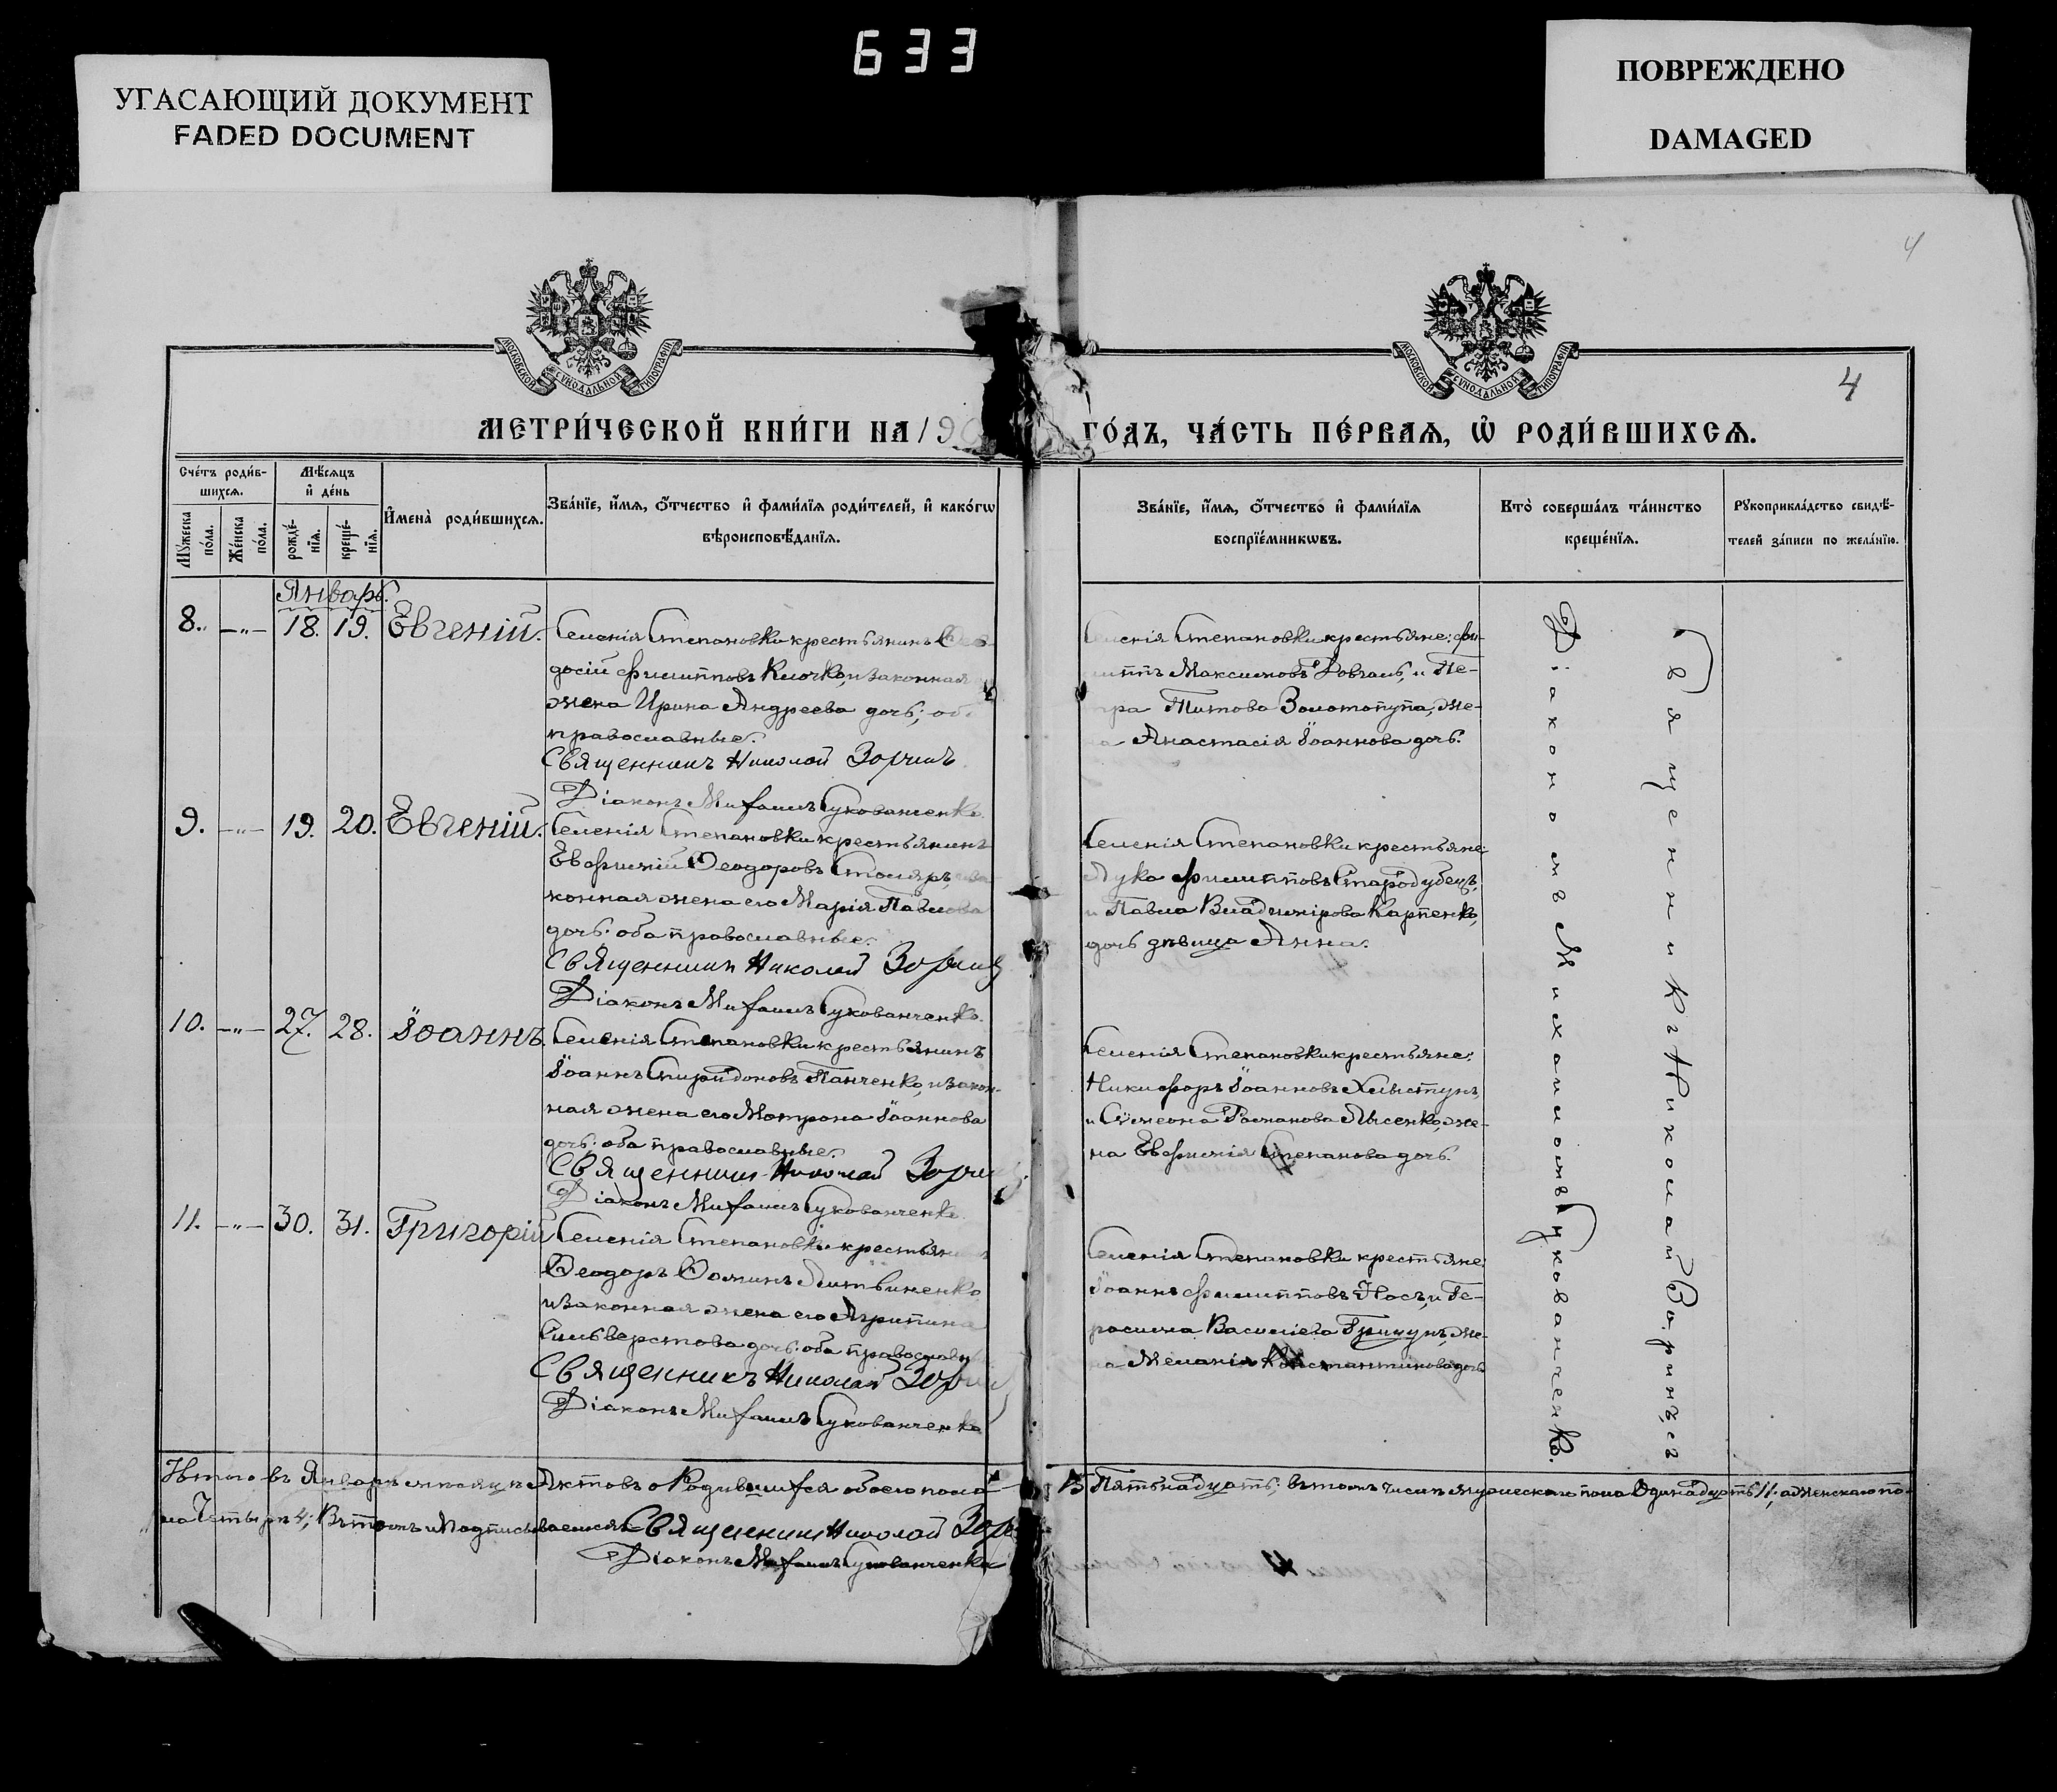 633
УГАСАЮЩИЙ ДОКУМЕНТ
FADED DOCUMENT
ПОВРЕЖДЕНО
DAMAGED
4
4
МОСКОВСКОЙ СѴНОДАЛЬНОЙ ТИПОГРАФІИ
МОСКОВСКОЙ СѴНОДАЛЬНОЙ ТИПОГРАФІИ
МЕТРИ́ЧЕСКОЙ КНИ́ГИ НА 19
ГО́ДЪ, ЧА́СТЬ ПЕ́РВАѦ, Ѡ҆ РОДИ́ВШИХСѦ.
Сче́тъ роди́в-
шихсѧ.
Мѣ́сѧцъ
и҆ де́нь
Мꙋ́жеска
по́ла.
Же́нска
по́ла.
рожде́-
нїѧ.
креще́-
нїѧ.
И҆мена̀ роди́вшихсѧ.
Зва́нїе, и҆́мѧ, ѻ҆́тчество и҆ фами́лїѧ роди́телей, и҆ како́гѡ
вѣроисповѣ́данїѧ.
Зва́нїе, и҆́мѧ, ѻ҆́тчество и҆ фами́лїѧ
воспрїе́мникѡвъ.
Кто̀ соверша́лъ та́инство
креще́нїѧ.
Рꙋкоприкла́дство свидѣ́-
телей за́писи по жела́нїю.
Январь.
8. -"- 18. 19. Евгеній.
Селенія Степановки крестьянинъ Ѳео-
досій Филипповъ Клочко, и законная
жена Ирина Андреева дочь; оба
православные.
Священникъ Николай Зоринъ
Діаконъ Михаилъ Сукованченко.
Селенія Степановки крестьяне: Фи-
липпъ Максимовъ Ровчакъ, и Пе-
тра Титова Золотопупа, же-
на Анастасія Іоаннова дочь.
9. -"- 19. 20. Евгеній.
Селенія Степановки крестьянинъ
Евфимій Ѳеодоровъ Столяръ, и за-
конная жена его Марія Павлова
дочь: оба православные.
Священникъ Николай Зоринъ
Діаконъ Михаилъ Сукованченко.
Селенія Степановки крестьяне:
Лука Филипповъ Стародубецъ,
и Павла Владимірова Карпенко,
дочь дѣвица Анна.
10. -"- 27. 28. Іоаннъ.
Селенія Степановки крестьянинъ
Іоаннъ Спиридоновъ Панченко, и закон-
ная жена его Матрона Іоаннова
дочь: оба православные.
Священникъ Николай Зоринъ
Діаконъ Михаилъ Сукованченко.
Селенія Степановки крестьяне:
Никифоръ Іоанновъ Хлыстунъ,
и Сѵмеона Романова Лысенко, же-
на Евфимія Степанова дочь.
11. -"- 30. 31. Григорій
Селенія Степановки крестьянинъ
Ѳеодоръ Ѳоминъ Литвиненко
и законная жена его Агрипина
Сильверстова дочь: оба православн
Священникъ Николай Зоринъ
Діаконъ Михаилъ Сукованченко
Селенія Степановки крестьяне:
Іоаннъ Филипповъ Носъ, и Ге-
расима Василіева Грицунъ, же-
на Меланія Константинова дочь
Священникъ Николай Зоринъ, съ
Діакономъ Михаиломъ Сукованченко.
Итого въ Январѣ мѣсяцѣ Актовъ о Родившихся обоего пола 15 Пятьнадцать; въ томъ числѣ мужескаго пола Одинадцать 11; а женскаго по-
ла Четыри 4; Въ томъ и Подписываемся: Священникъ Николай Зоринъ
Діаконъ Михаилъ Сукованченко